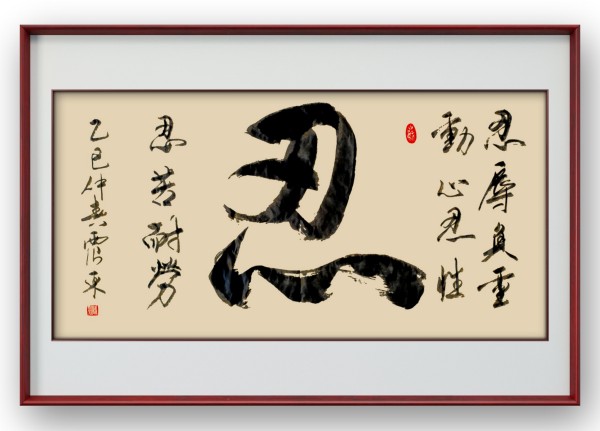 忍辱負重
動心忍性
忍
忍苦耐勞
乙巳仲春